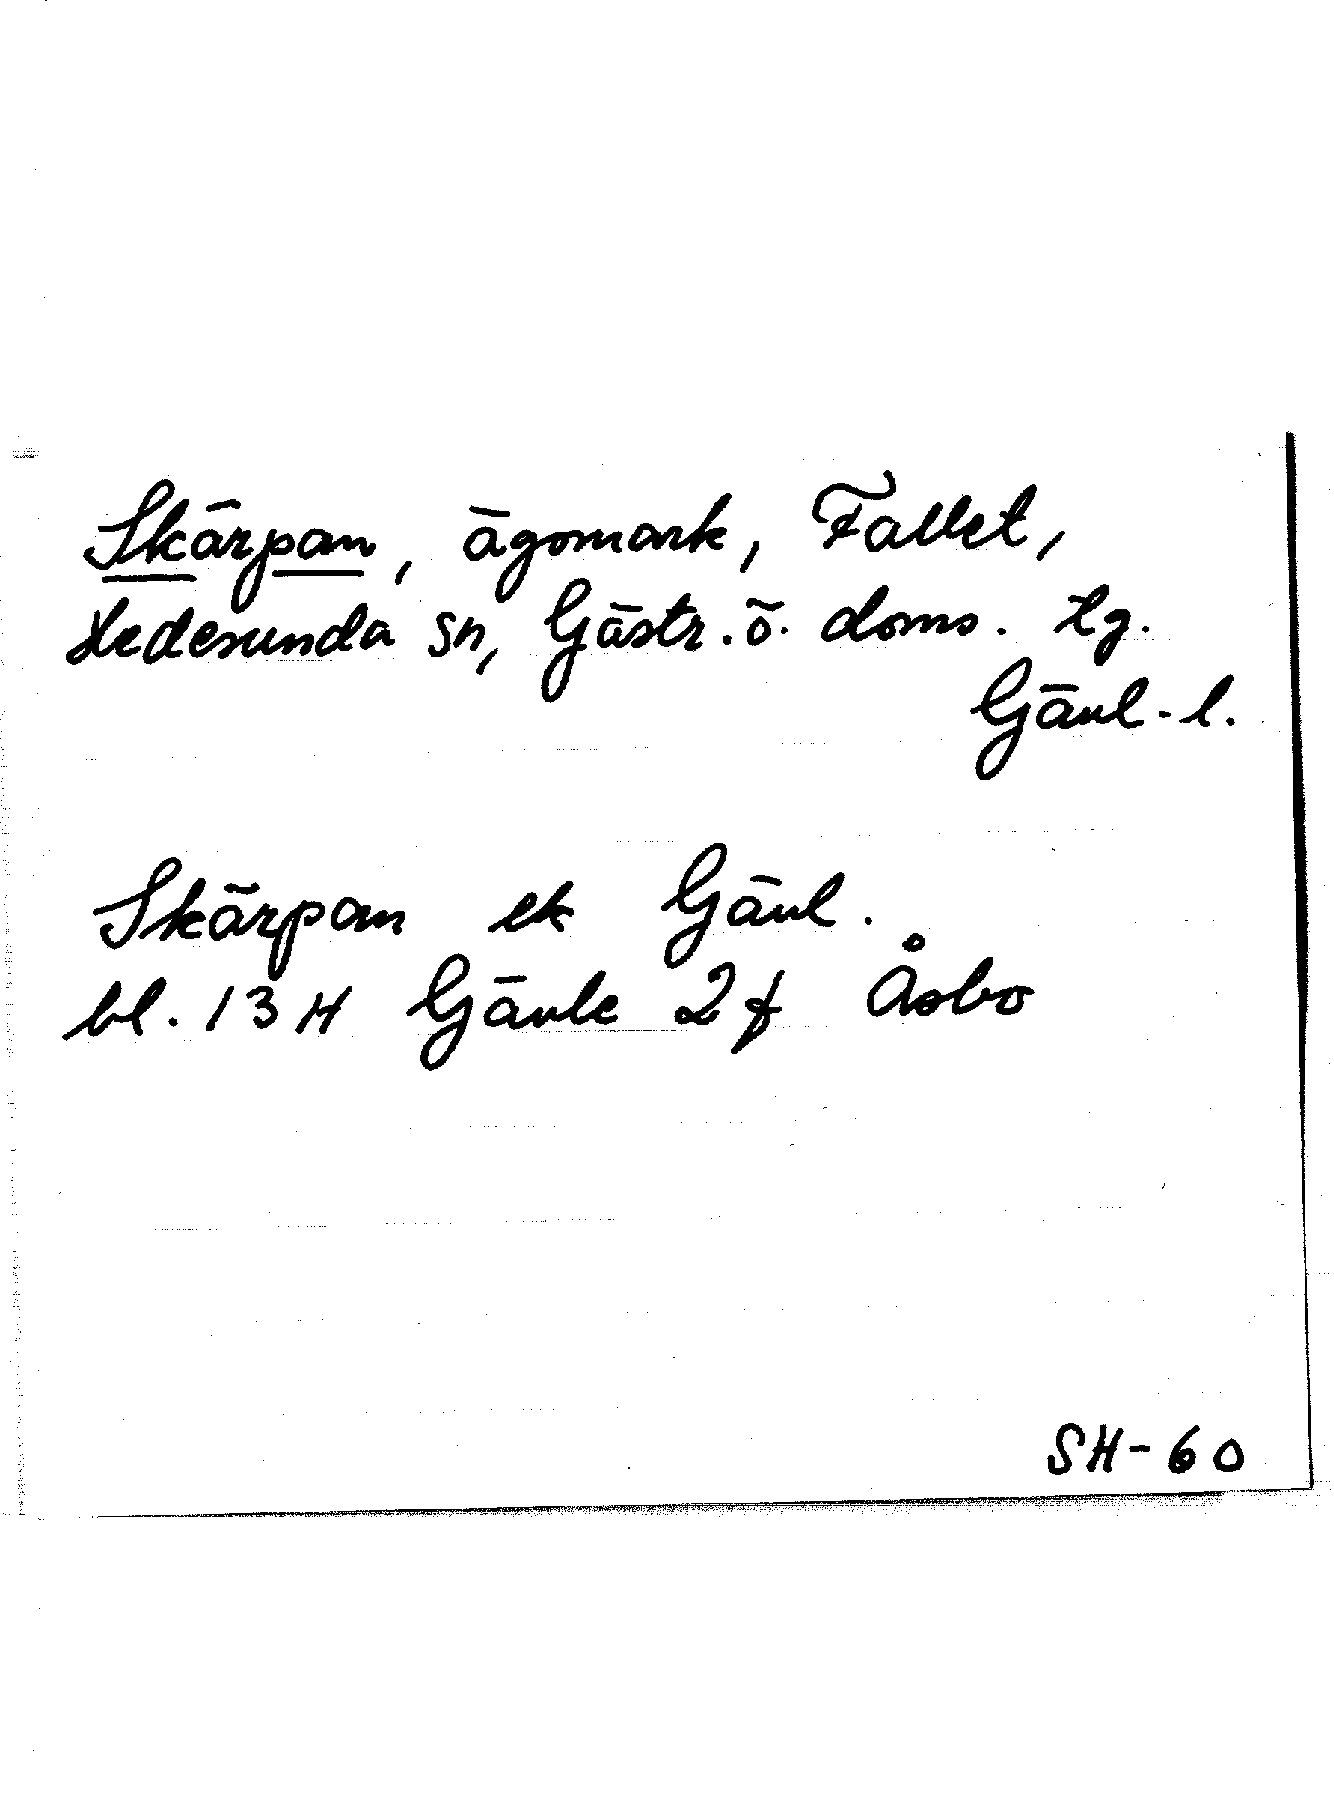 Skärpan, ägomark, Fallet,
Hedesunda sn, Gästr. ö. doms. tg.
Gävl-l.
Skärpan ek Gävl.
bl. 13 H Gävle 2 f Åsbo
SH-60